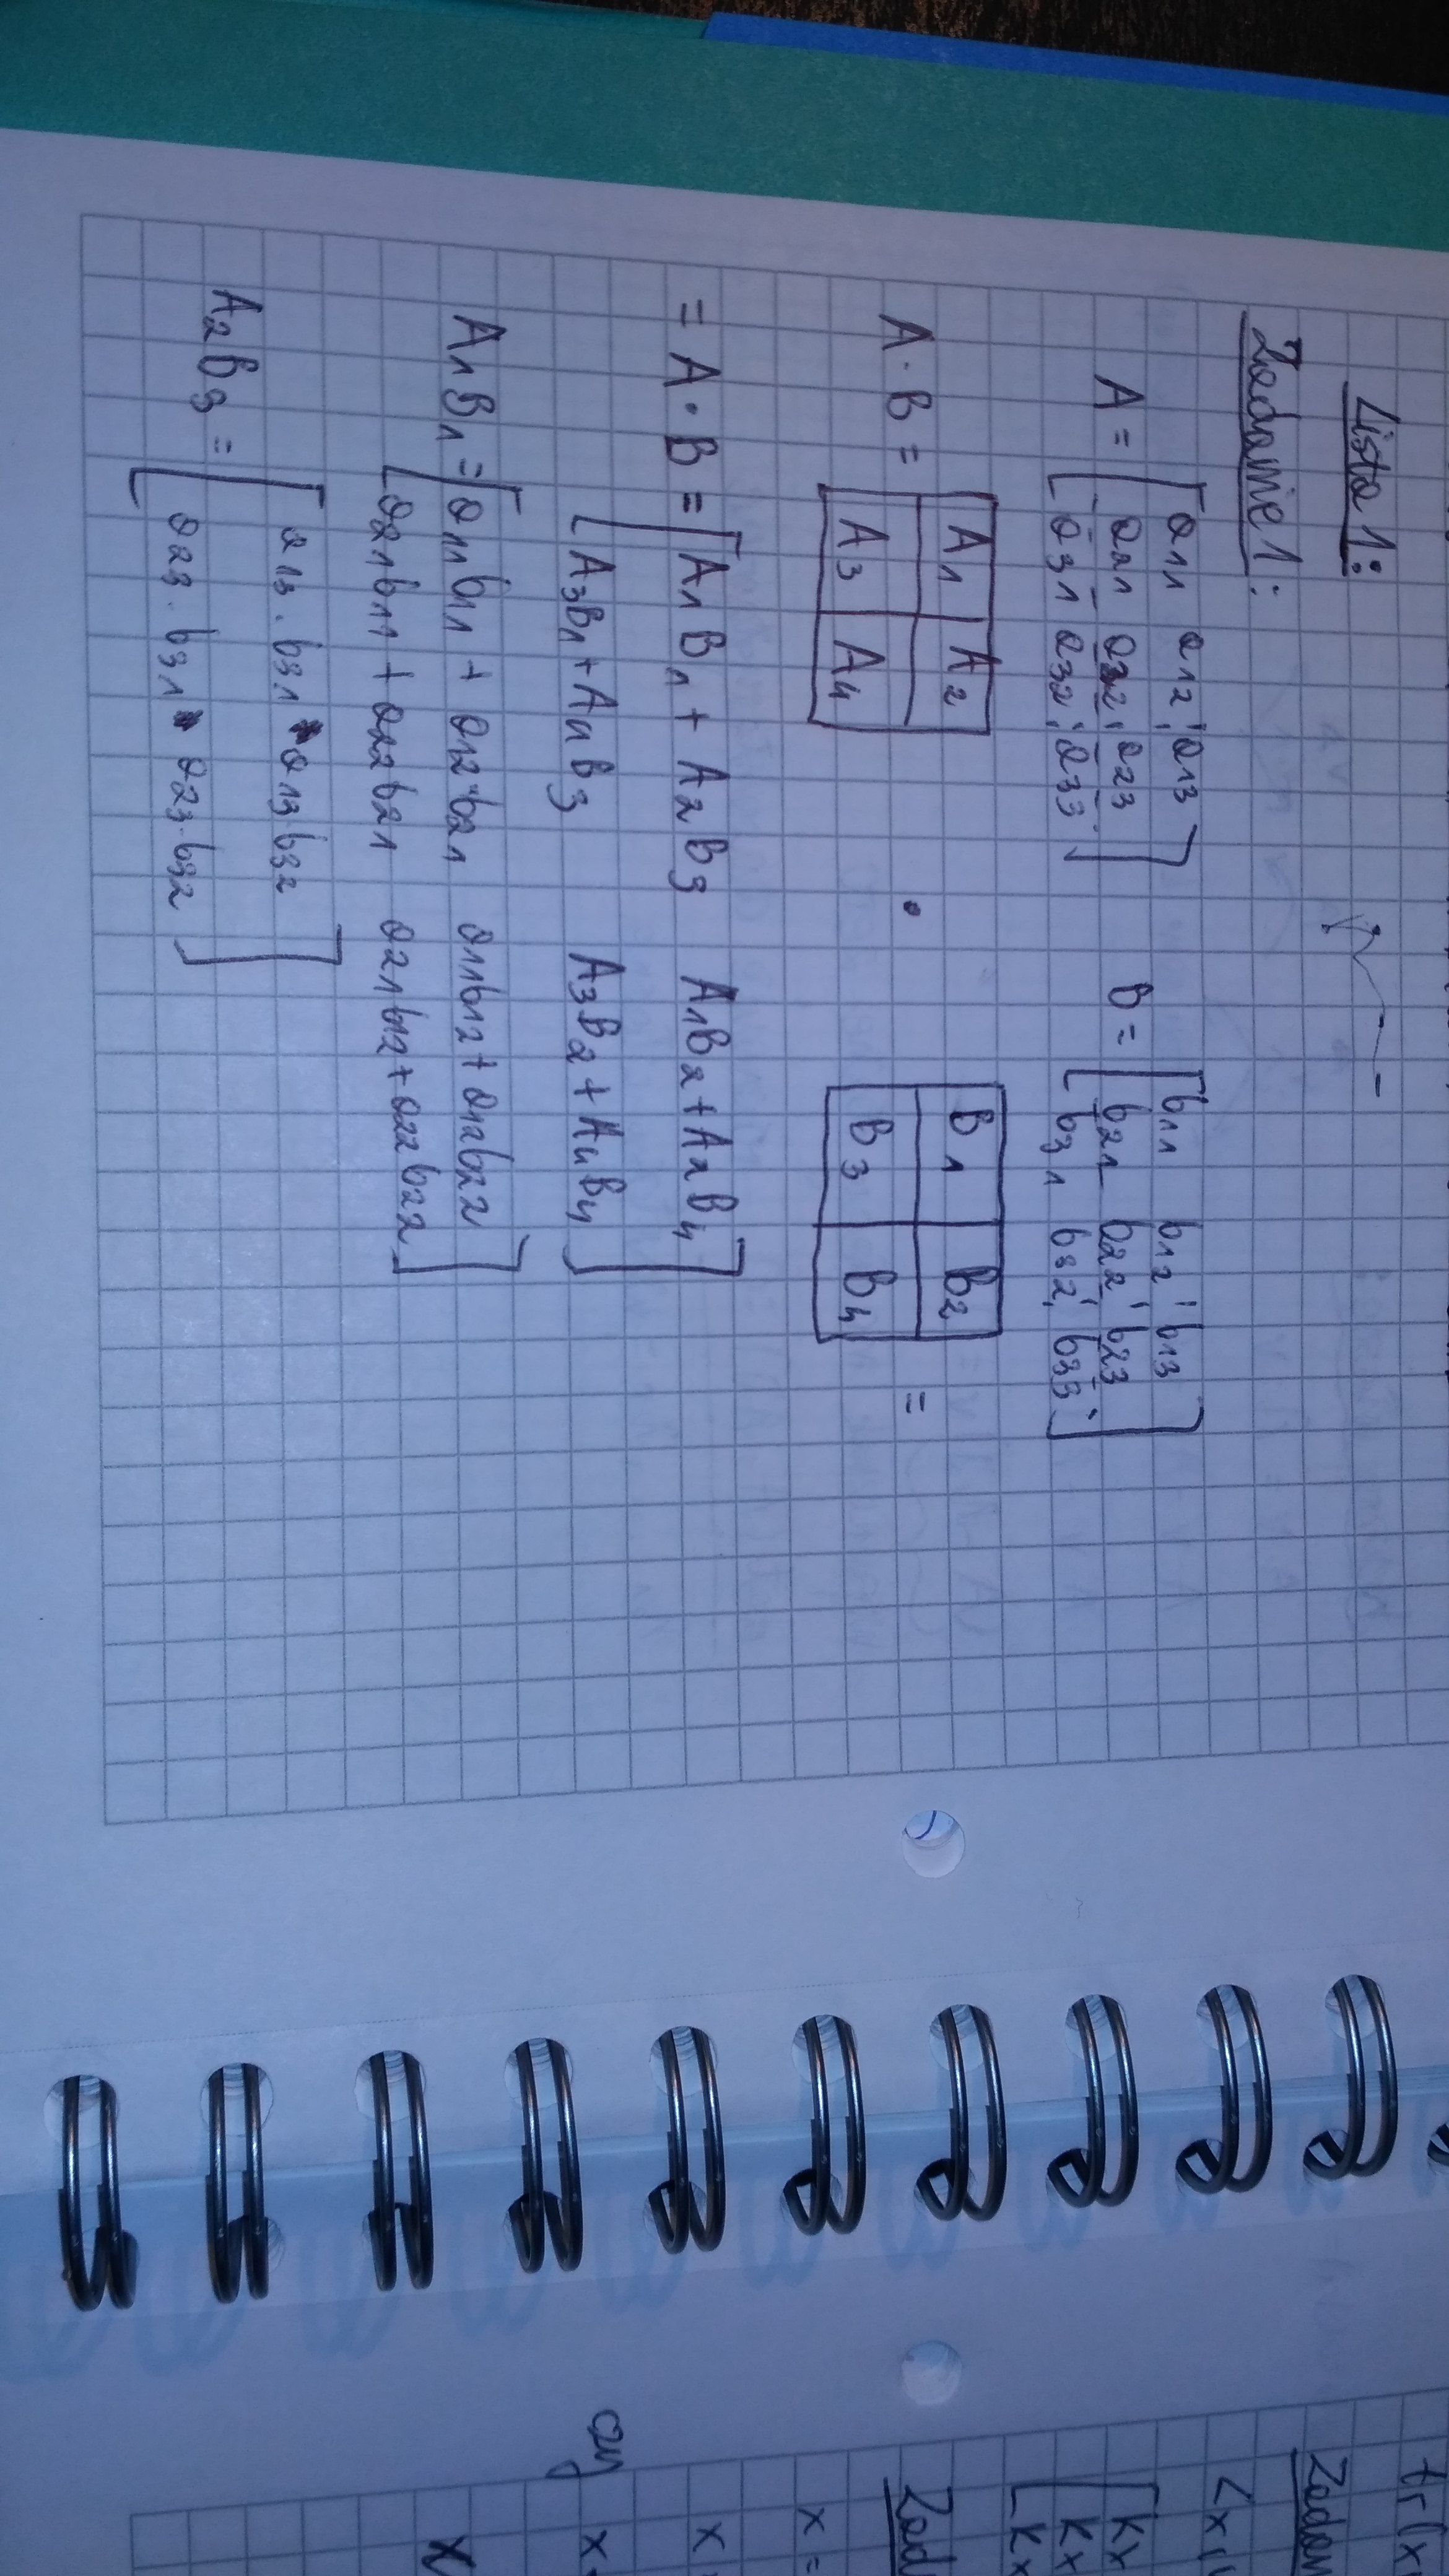 Lista 1:
Zadanie 1:
A = [ a11 a12 ¦ a13
a21 a22 ¦ a23
a31 a32 ¦ a33 ]
B = [ b11 b12 ¦ b13
b21 b22 ¦ b23
b31 b32 ¦ b33 ]
A · B = A1 A2 · B1 B2 =
A3 A4 B3 B4
= A · B = [ A1 B1 + A2 B3 A1B2 + A2 B4
A3B1 + A4 B3 A3B2 + A4B4 ]
A1 B1 = [ a11b11 + a12·b21 a11b12 + a12b22
a21b11 + a22b21 a21b12 + a22b22 ]
A2B3 = [ a13 · b31 a13·b32
a23 · b31 a23·b32 ]
tr(x
Zadan
<x,
[ kx
kx
kx
Zad
x =
x
x
x